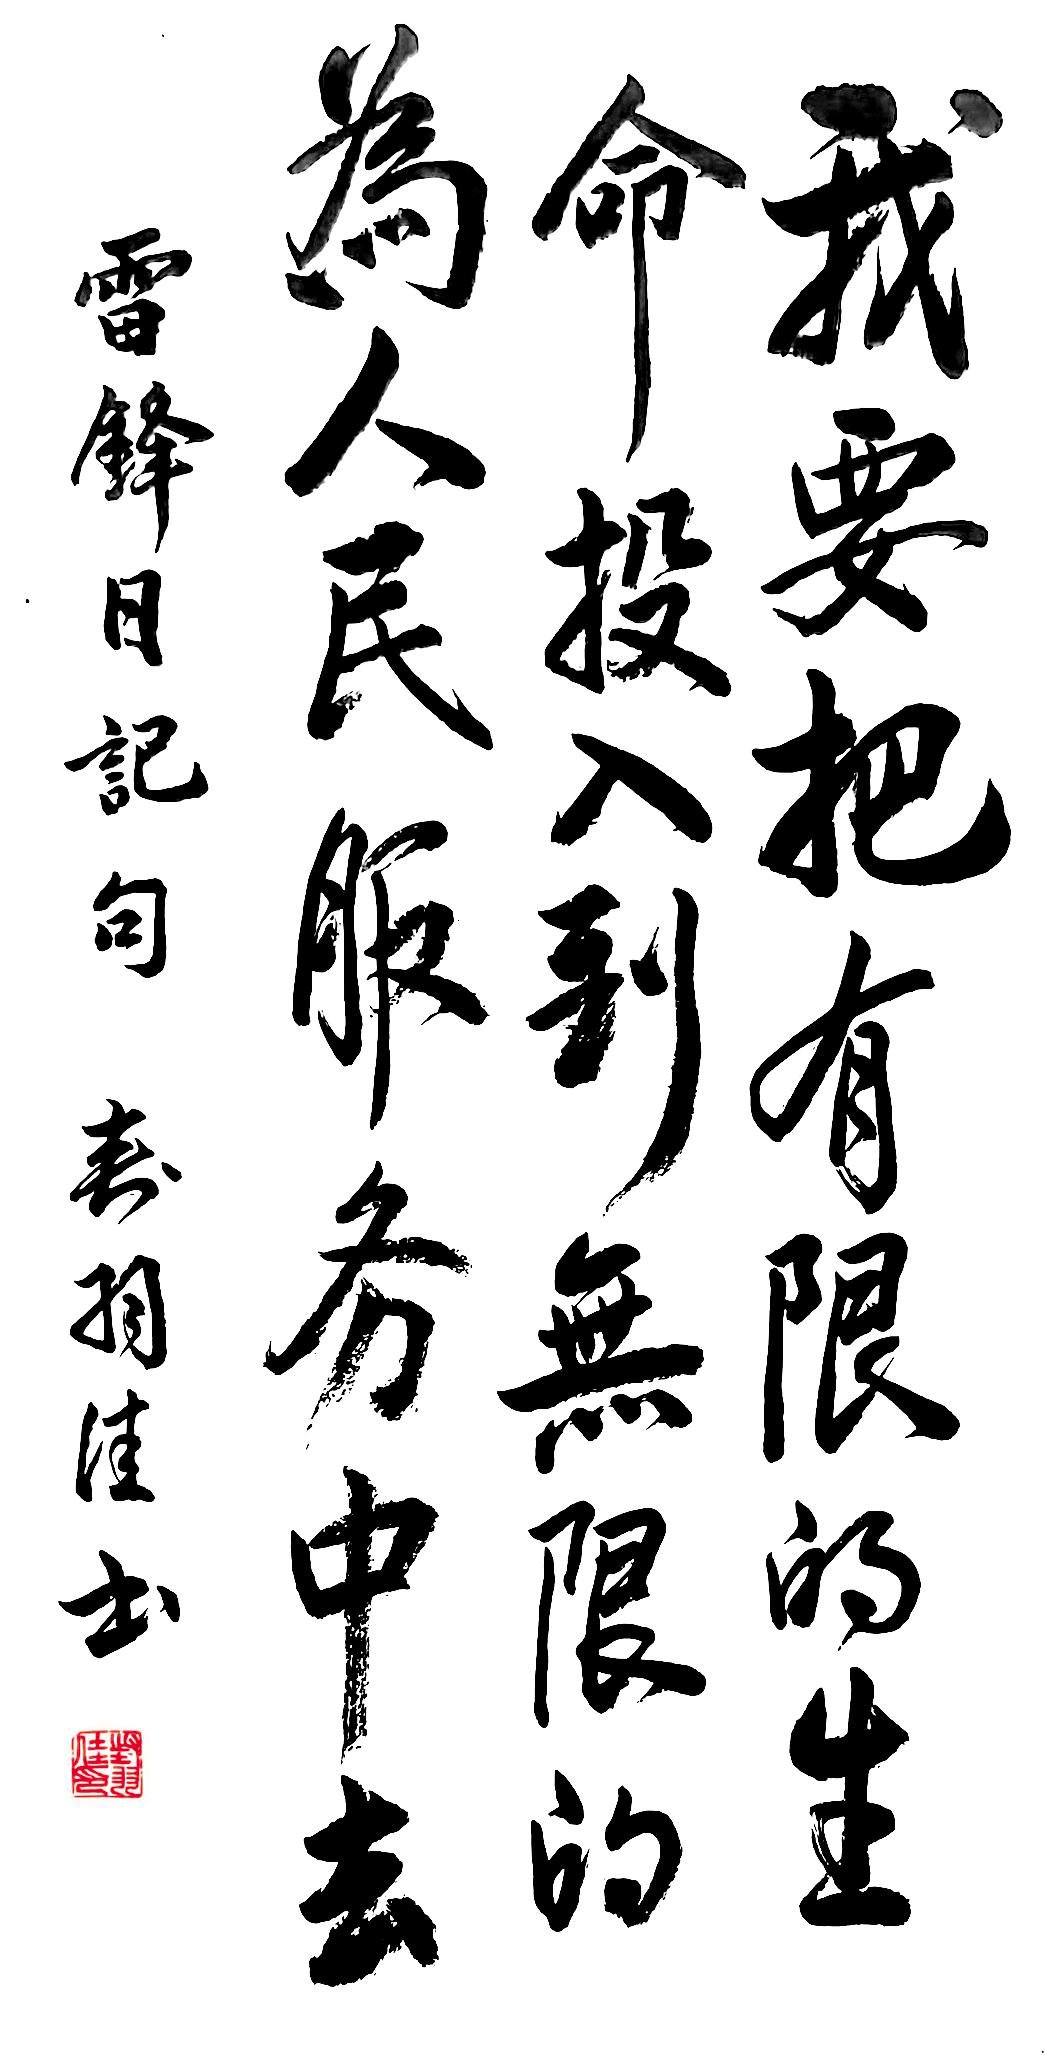 我要把有限的生
命投入到無限的
為人民服务中去
雷鋒日記句 封羽佳书
封羽佳印